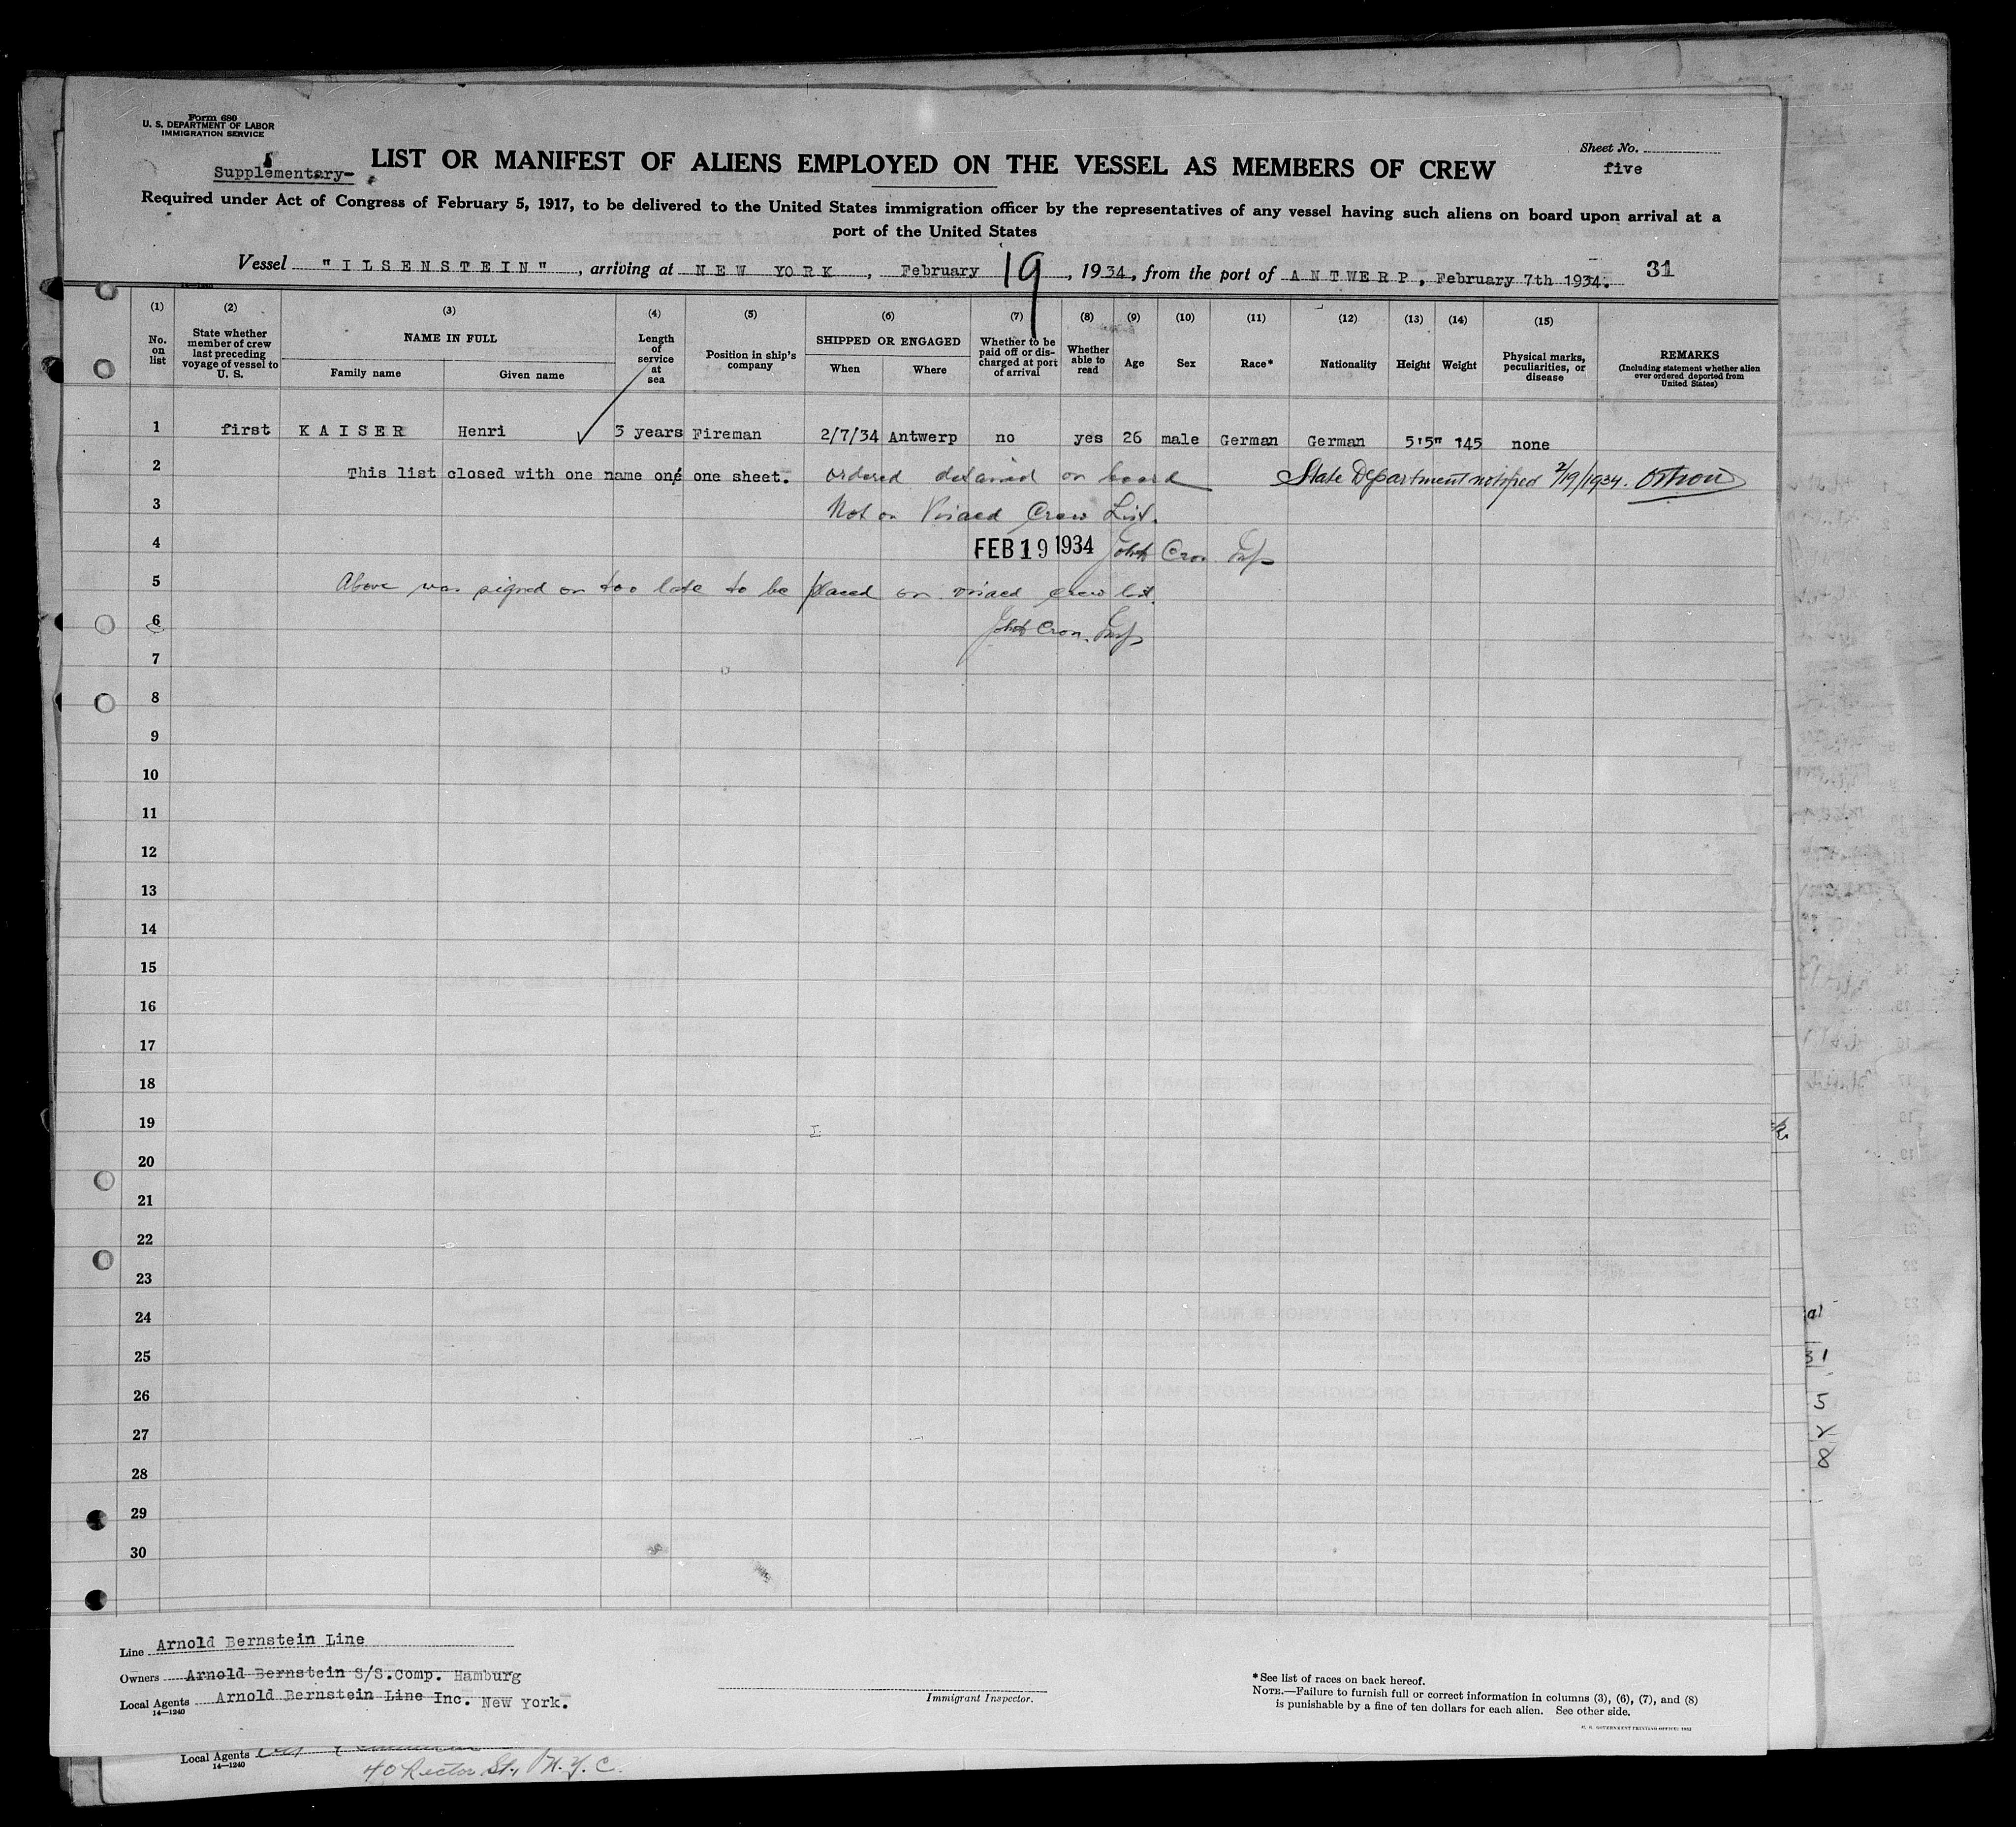 Form 680
U. S. DEPARTMENT OF LABOR
IMMIGRATION SERVICE
Supplementary-
LIST OR MANIFEST OF ALIENS EMPLOYED ON THE VESSEL AS MEMBERS OF CREW
Sheet No.
five
Required under Act of Congress of February 5, 1917, to be delivered to the United States immigration officer by the representatives of any vessel having such aliens on board upon arrival at a
port of the United States
Vessel "ILSENSTEIN", arriving at NEW YORK, February 19, 1934, from the port of ANTWERP, February 7th 1934. 31
(1) (2) (3) (4) (5) (6) (7) (8) (9) (10) (11) (12) (13) (14) (15)
No. on list
State whether member of crew last preceding voyage of vessel to U. S.
NAME IN FULL
Family name
Given name
Length of service at sea
Position in ship's company
SHIPPED OR ENGAGED
When
Where
Whether to be paid off or discharged at port of arrival
Whether able to read
Age
Sex
Race*
Nationality
Height
Weight
Physical marks, peculiarities, or disease
REMARKS
(Including statement whether alien ever ordered deported from United States)
1 first KAISER Henri 3 years Fireman 2/7/34 Antwerp no yes 26 male German German 5'5" 145 none
2 This list closed with one name one one sheet. ordered detained on board State Department notified 2/19/1934.
3 Not on Visaed Crew List.
4 FEB 19 1934 John Cron Insp
5 Above was signed on too late to be placed on visaed crew list.
6 John Cron. Insp
7
8
9
10
11
12
13
14
15
16
17
18
19
20
21
22
23
24
25
26
27
28
29
30
Line Arnold Bernstein Line
Owners Arnold Bernstein S/S.Comp. Hamburg
Local Agents Arnold Bernstein Line Inc. New York.
14—1240
Immigrant Inspector.
*See list of races on back hereof.
NOTE.—Failure to furnish full or correct information in columns (3), (6), (7), and (8)
is punishable by a fine of ten dollars for each alien. See other side.
U. S. GOVERNMENT PRINTING OFFICE:
Local Agents
14—1240
40 Rector St., N.Y.C.
31
5
8